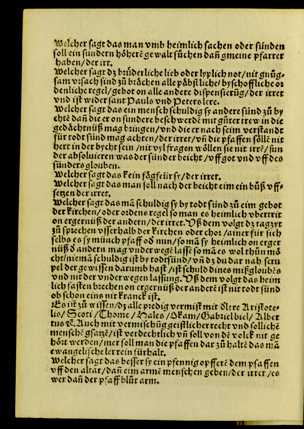 Welcher sagt das man vmb heimlich sachen oder sünden
soll ein sundern höhere gewalt süchen dañ gmeine pfarrer
haben/ der irt.
Welcher sagt dz brüderliche lieb oder leyblich not/ nit gnůg-
sam vrsach sind zů brächen alle päbstliche/ byschoffliche or
denliche regel/ gebot on alle andere dispensierůg/ der irret
vnd ist wider sant Pauls vnd Peters lere.
Welcher sagt das ein mensch schuldig sy andere sünd zů by
chtē dañ die er on sundere beschwerdē mit gůter rew in die
gedächtniß mag bringen/ vnd die er nach seim verstandt
für tod sünd mag achten/ der irret/ vñ die pfaffen söllē nit
herr in der bycht sein/ nit vyl fragen wöllen sie nit irrē/ sun
der absoluieren was der sünder beicht/ vff got vnd vff des
sünders glouben.
Welcher sagt das kein fägfeür sy/ der irret.
Welcher sagt das man soll nach der beicht eim ein bůß vff-
setzen der irret.
Welcher sagt das mā schuldig sy by tod sünd zů eim gebot
der kirchen/ oder ordens regel so man es heimlich vbertrit
on ergernüß der andern/ der irret. Vß dem volgt dz tagzyt
zů sprechen vsserhalb der kirchen oder chor/ ainer für sich
selbs es sy münch pfaff oď nun/ so mā sy heimlich on erger
nüß ď andern mag vnder wegē lassē so mā es wol thůn mö
cht/ niemā schuldig ist by todsünd/ vñ dz du dar nach scru
pel der gewissen darumb hast/ ist schuld dines mißgloubēs
vnd nit der vnder wegen lassung. Vß dem volgt das heim
lich fasten brechen on ergernüß der andern ist nit tod sünd
ob schon eins nit kranck ist.
Es ist zů wissen/ dz alle predig vermist mit Lere Aristote-
lis/ Scoti/ Thome/ Hales/ Okam/ Gabriel biel/ Alber
tus ꝛc. Auch mit vermischūg geistlicher recht vnd söllichē
menschē gsatzē/ ist verdechtlich vñ soll von dē volck nit ge
hört werden/ mer soll man die pfaffen dar zů haltē das mā
ewangelische lere rein fürhalt.
Welcher sagt das besser sy ein pfennig opfferē dem pfaffen
vff den altar/ dañ eim arme menschen geben/ der irret/ es
wer dañ der pfaff blůt arm.